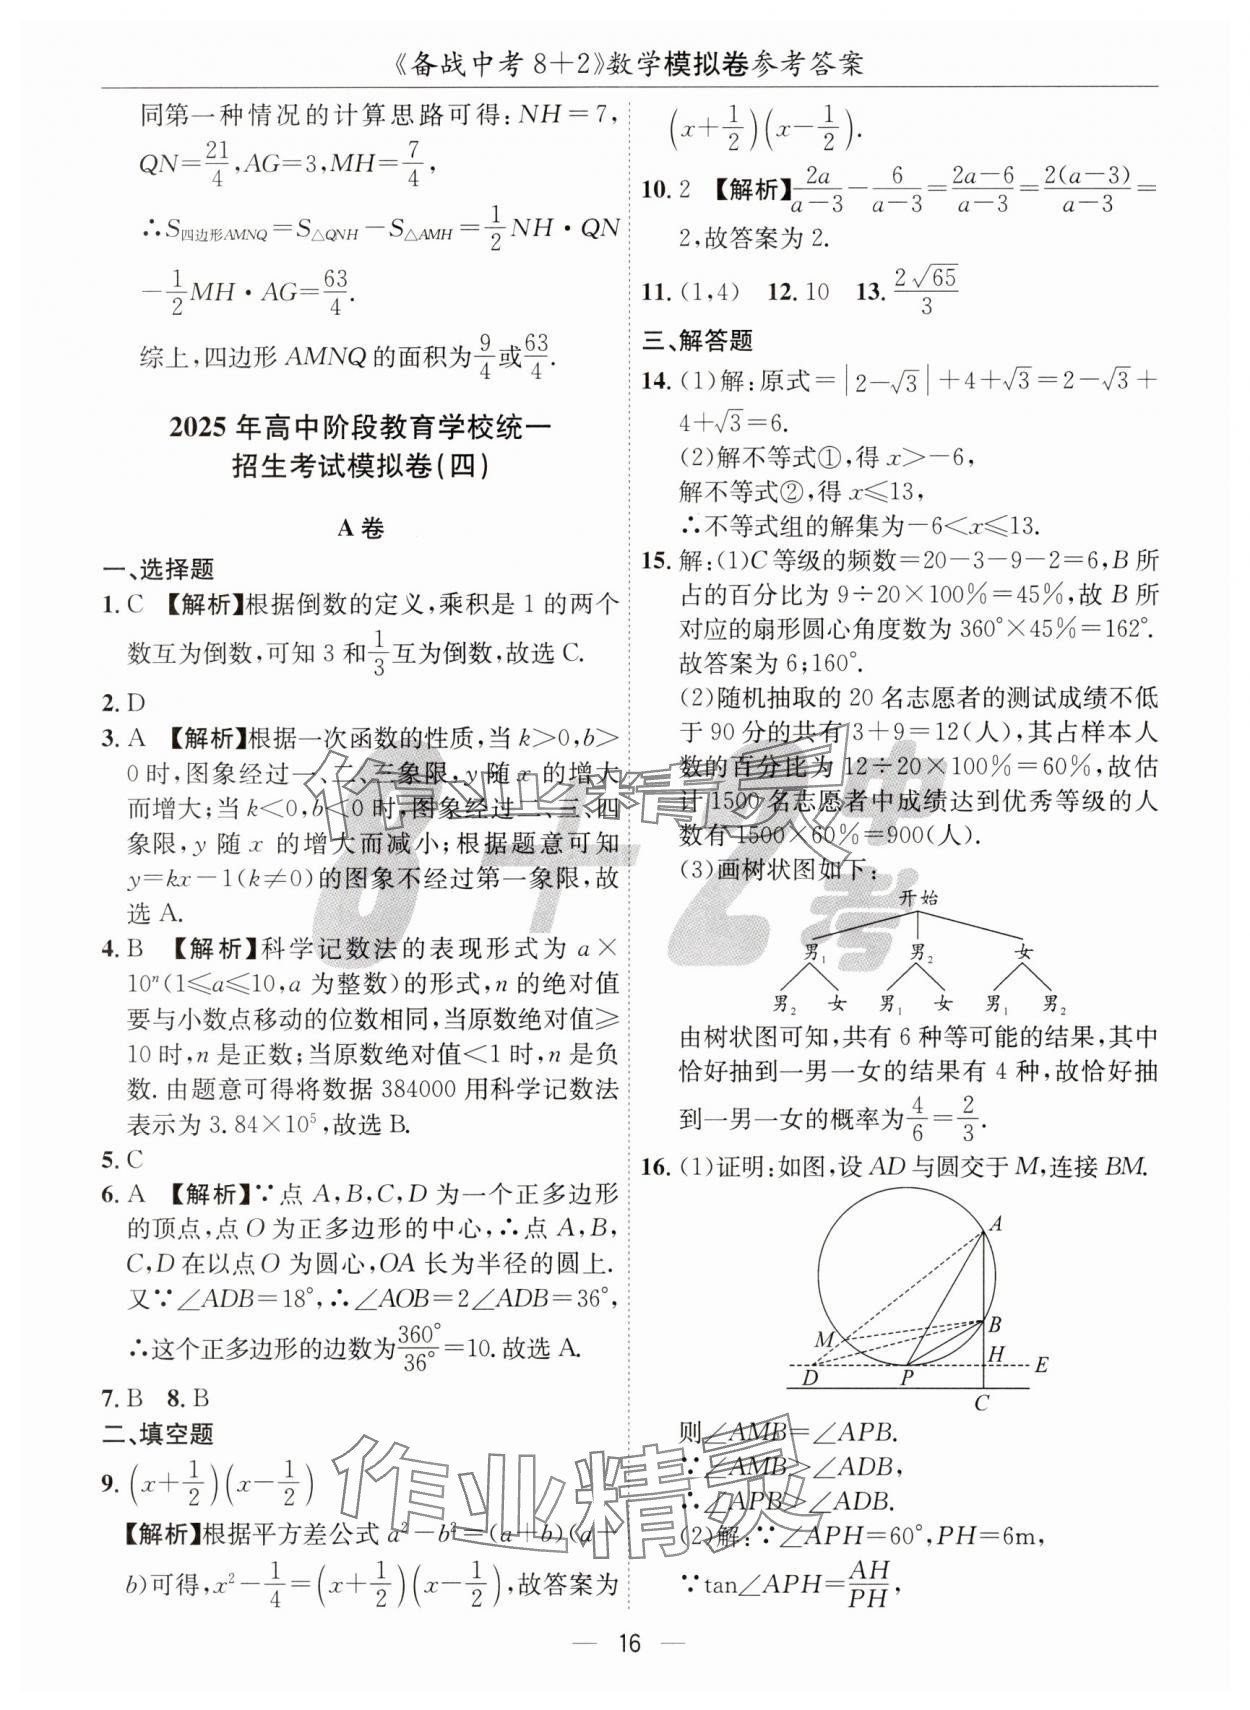 《备战中考8+2》数学模拟卷参考答案
同第一种情况的计算思路可得:NH=7,
QN=21/4,AG=3,MH=7/4,
∴S四边形AMNQ=S△QNH-S△AMH=1/2NH·QN
-1/2MH·AG=63/4.
综上,四边形AMNQ的面积为9/4或63/4.
2025年高中阶段教育学校统一
招生考试模拟卷(四)
A卷
一、选择题
1. C 【解析】根据倒数的定义,乘积是1的两个
数互为倒数,可知3和1/3互为倒数,故选C.
2. D
3. A 【解析】根据一次函数的性质,当k>0,b>
0时,图象经过一、二、三象限,y随x的增大
而增大;当k<0,b<0时,图象经过二、三、四
象限,y随x的增大而减小;根据题意可知
y=kx-1(k≠0)的图象不经过第一象限,故
选A.
4. B 【解析】科学记数法的表现形式为a×
10ⁿ(1≤a≤10,a为整数)的形式,n的绝对值
要与小数点移动的位数相同,当原数绝对值≥
10时,n是正数;当原数绝对值<1时,n是负
数.由题意可得将数据384000用科学记数法
表示为3.84×10⁵,故选B.
5. C
6. A 【解析】∵点A,B,C,D为一个正多边形
的顶点,点O为正多边形的中心,∴点A,B,
C,D在以点O为圆心,OA长为半径的圆上.
又∵∠ADB=18°,∴∠AOB=2∠ADB=36°,
∴这个正多边形的边数为360°/36°=10.故选A.
7. B 8. B
二、填空题
9. (x+1/2)(x-1/2)
【解析】根据平方差公式a²-b²=(a+b)(a-
b)可得,x²-1/4=(x+1/2)(x-1/2),故答案为
(x+1/2)(x-1/2).
10. 2 【解析】2a/(a-3)-6/(a-3)=(2a-6)/(a-3)=2(a-3)/(a-3)=
2,故答案为2.
11. (1,4) 12. 10 13. 2√65/3
三、解答题
14. (1)解:原式=|2-√3|+4+√3=2-√3+
4+√3=6.
(2)解不等式①,得x>-6,
解不等式②,得x≤13,
∴不等式组的解集为-6<x≤13.
15. 解:(1)C等级的频数=20-3-9-2=6,B所
占的百分比为9÷20×100%=45%,故B所
对应的扇形圆心角度数为360°×45%=162°.
故答案为6;160°.
(2)随机抽取的20名志愿者的测试成绩不低
于90分的共有3+9=12(人),其占样本人
数的百分比为12÷20×100%=60%,故估
计1500名志愿者中成绩达到优秀等级的人
数有1500×60%=900(人).
(3)画树状图如下:
开始
男₁ 男₂ 女
男₂ 女 男₁ 女 男₁ 男₂
由树状图可知,共有6种等可能的结果,其中
恰好抽到一男一女的结果有4种,故恰好抽
到一男一女的概率为4/6=2/3.
16. (1)证明:如图,设AD与圆交于M,连接BM.
A
M
B
H
E
D
P
C
则∠AMB=∠APB.
∵∠AMB>∠ADB,
∴∠APB>∠ADB.
(2)解:∵∠APH=60°,PH=6m,
∵tan∠APH=AH/PH,
8+2中考
作业精灵
作业精灵
— 16 —